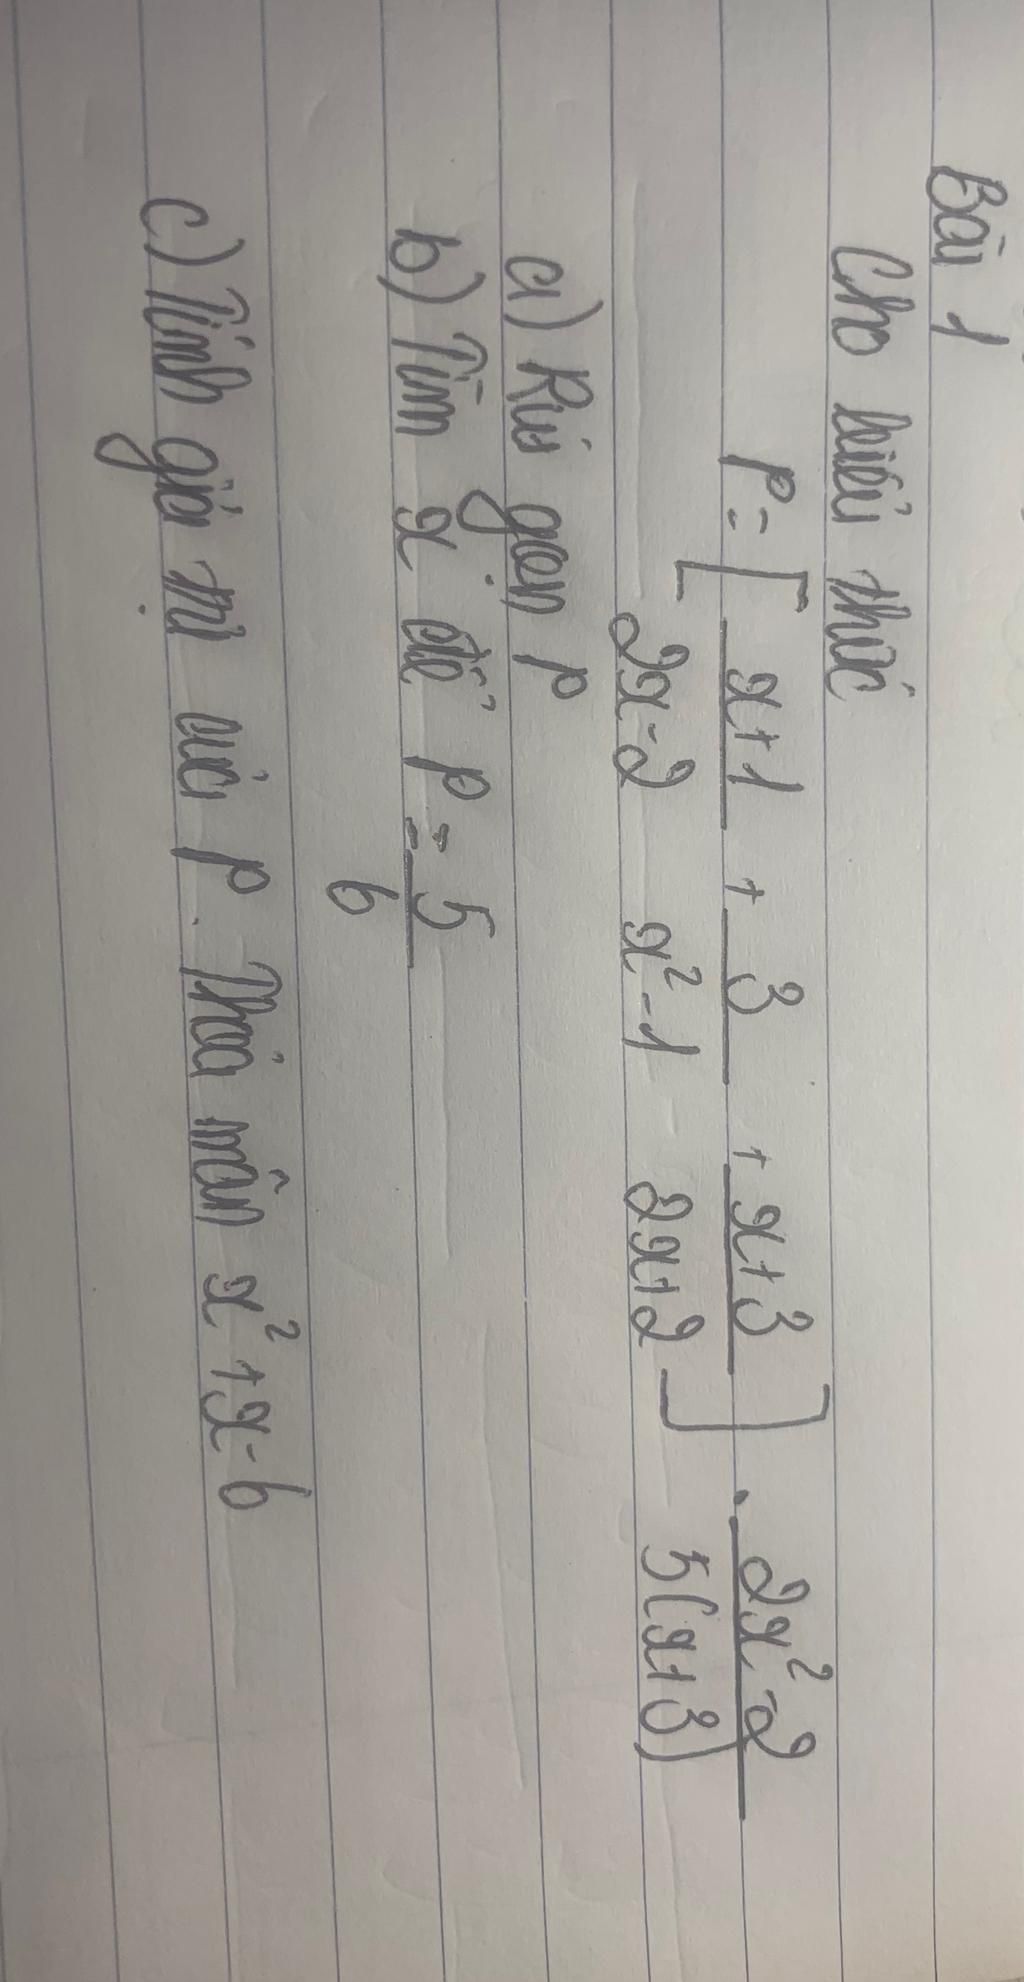 Bài 1
Cho biểu thức
P = [ (x+1)/(2x-2) + 3/(x²-1) + (x+3)/(2x+2) ] . (2x²-2)/(5(x+3))
a) Rút gọn P
b) Tìm x để P = 5/6
c) Tính giá trị của P. Thoả mãn x² + x - 6